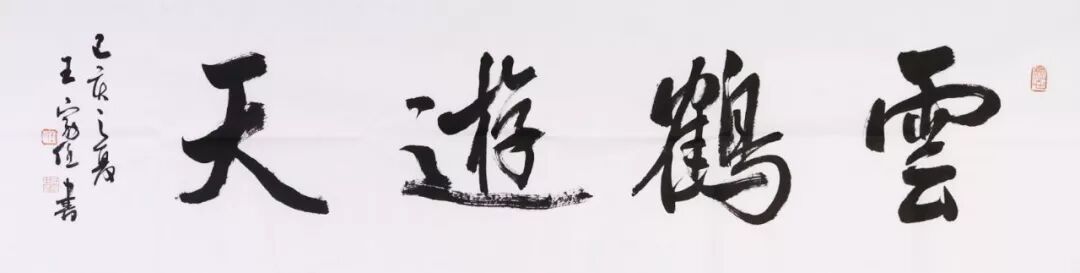 雲鶴遊天
己亥之夏
王家恆書